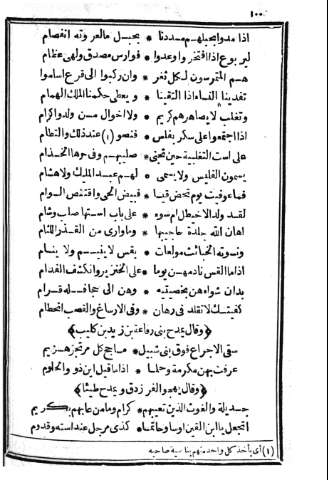 ١٠٠
اذا مدوا بحبلهم مددنا * بحبل ما لعروته انفصام
ليربوع اذا افتخروا وعدوا * فوارس مصدق ولهى عظام
هم المتمرسون لكل ثغر * وان ركبوا الى قرع اساموا
تفدينا النساء اذا التقينا * ويعطى حكمنا الملك الهمام
وتغلب لا يصاهرهم كريم * ولا اخوال من ولدوا كرام
اذا اجتمعوا على سكر بفلس * فنصو (١) عند ذلك والتطام
على است التغلبية حين تحنى * صليبهم وفى حرها الخدام
يسمون الفليس ولا يسمى * لهم عبد المليك ولا هشام
فما عوفيت يوم تحض قيسا * فبيض الحى واقتنص السوام
لقد ولد الاخيطل ام سوء * على باب استها صلب وشام
اهان الله جلدة حاجبيها * وما وارى من القذر اللثام
ونسوته الخبائث مولعات * بقس لا ينيم ولا ينام
اذا ما القس نادمهن يوما * على الخنزير وانكشف الفدام
يدان شواهن
كفيتك لا تقلد فى رهان * وفى الارساغ والقصب انحطام
﴿وقال يمدح بنى رواعة بن زيد بن كليب﴾
سقى الاجراع فوق بنى شبيل * مباجج كل مرتجز هزيم
عرفت بهن مكرمة وحلما * اذا ما قيل اين ذوو الحلوم
﴿وقال يهجو الفرزدق ويمدح طيئا﴾
جديلة والغوث الذين تعيبهم * كرام وما من عابهم بكريم
اتجعل يا ابن القين اوسا وحاتما * كذى مرجل عند استه وقدوم
(١) أى يأخذ كل واحد منهم بناصية صاحبه